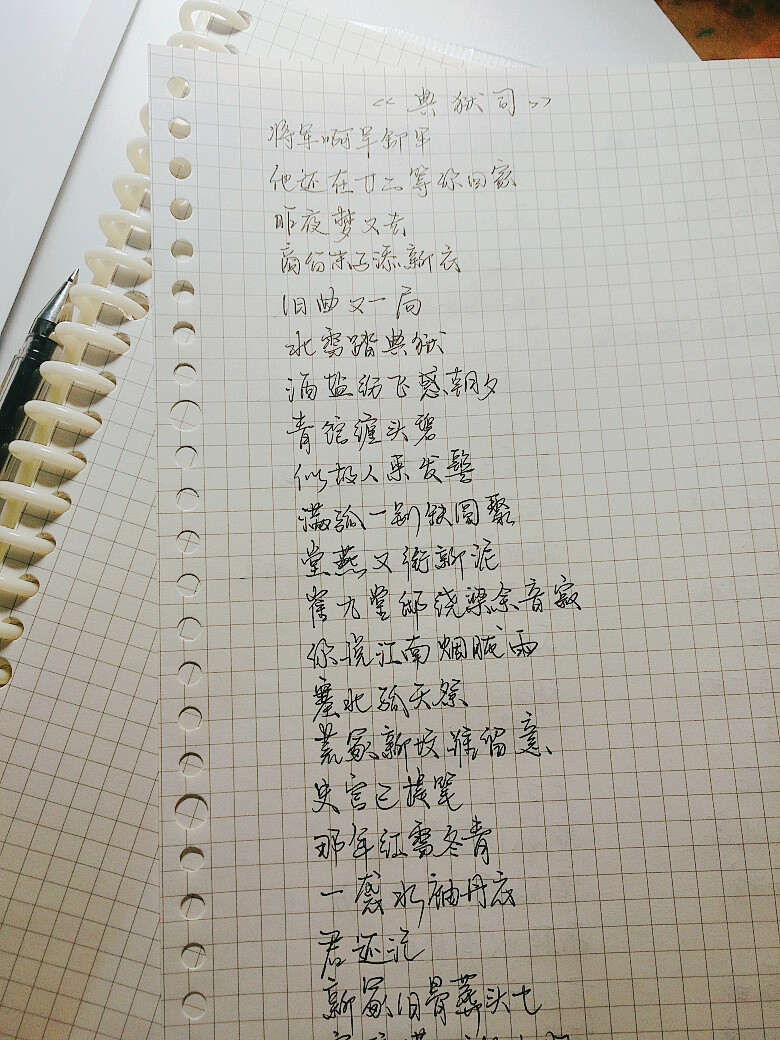 《典狱司》
将军啊早卸甲
他还在廿二等你回家
昨夜梦又去
商台末子添新衣
旧曲又一局
北雪踏典狱
洒盐纷飞惑朝夕
青绾缠头碧
似故人来发髻
满弧一剔缺圆聚
堂燕又衔新泥
崔九堂邸绕梁余音寂
你说江南烟胧雨
塞北孤天祭
荒冢新坟谁留意
史官已提笔
那年红雪冬青
一袭水袖丹衣
君还记
新冢旧骨葬头七